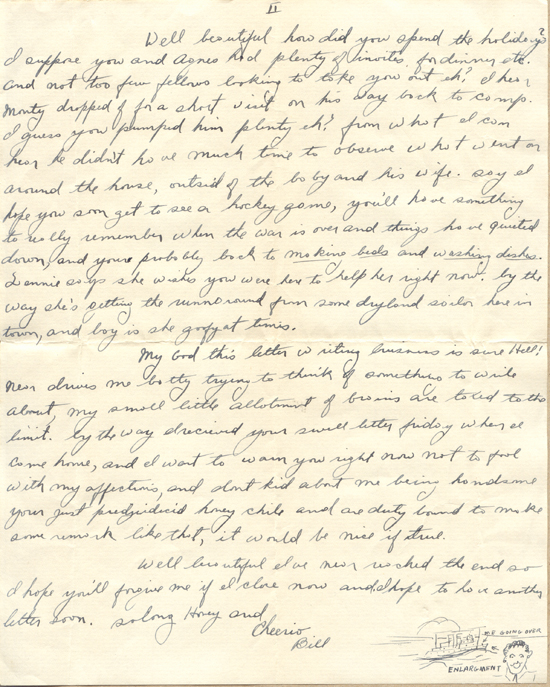 II
Well beautiful how did you spend the holidays?
I suppose you and Agnes had plenty of invites. for dinner etc.
and not too few fellows looking to take you out eh? I hear
Monty dropped of for a short visit on his way back to camp.
I guess you pumped him plenty eh? from what I can
hear he didn't have much time to observe what went on
around the house, outside of the baby and his wife. say I
hope you soon get to see a hockey game, you'll have something
to really remember when the war is over and things have quieted
down, and youre probably back to making beds and washing dishes.
says she wishes you were here to help her right now. by the
way she's getting the runnaround from some dryland sailor here in
town, and boy is she goofy at times.
My God this letter writing business is sure Hell!
Near drives me batty trying to think of something to write
about, my small little allotment of brains are taxed to the
limit. by the way I received your swell letter friday when I
come home, and I want to warn you right now not to fool
with my affections, and dont kid about me being handsome
your just predjuidicid honey chile and are duty bound to make
some remark like that, it would be nice if true.
Well beautiful I've near reached the end so
I hope you'll forgive me if I close now and I hope to have another
letter soon. so long Honey and
Cheerio
Bill
GOING OVER
ENLARGMENT